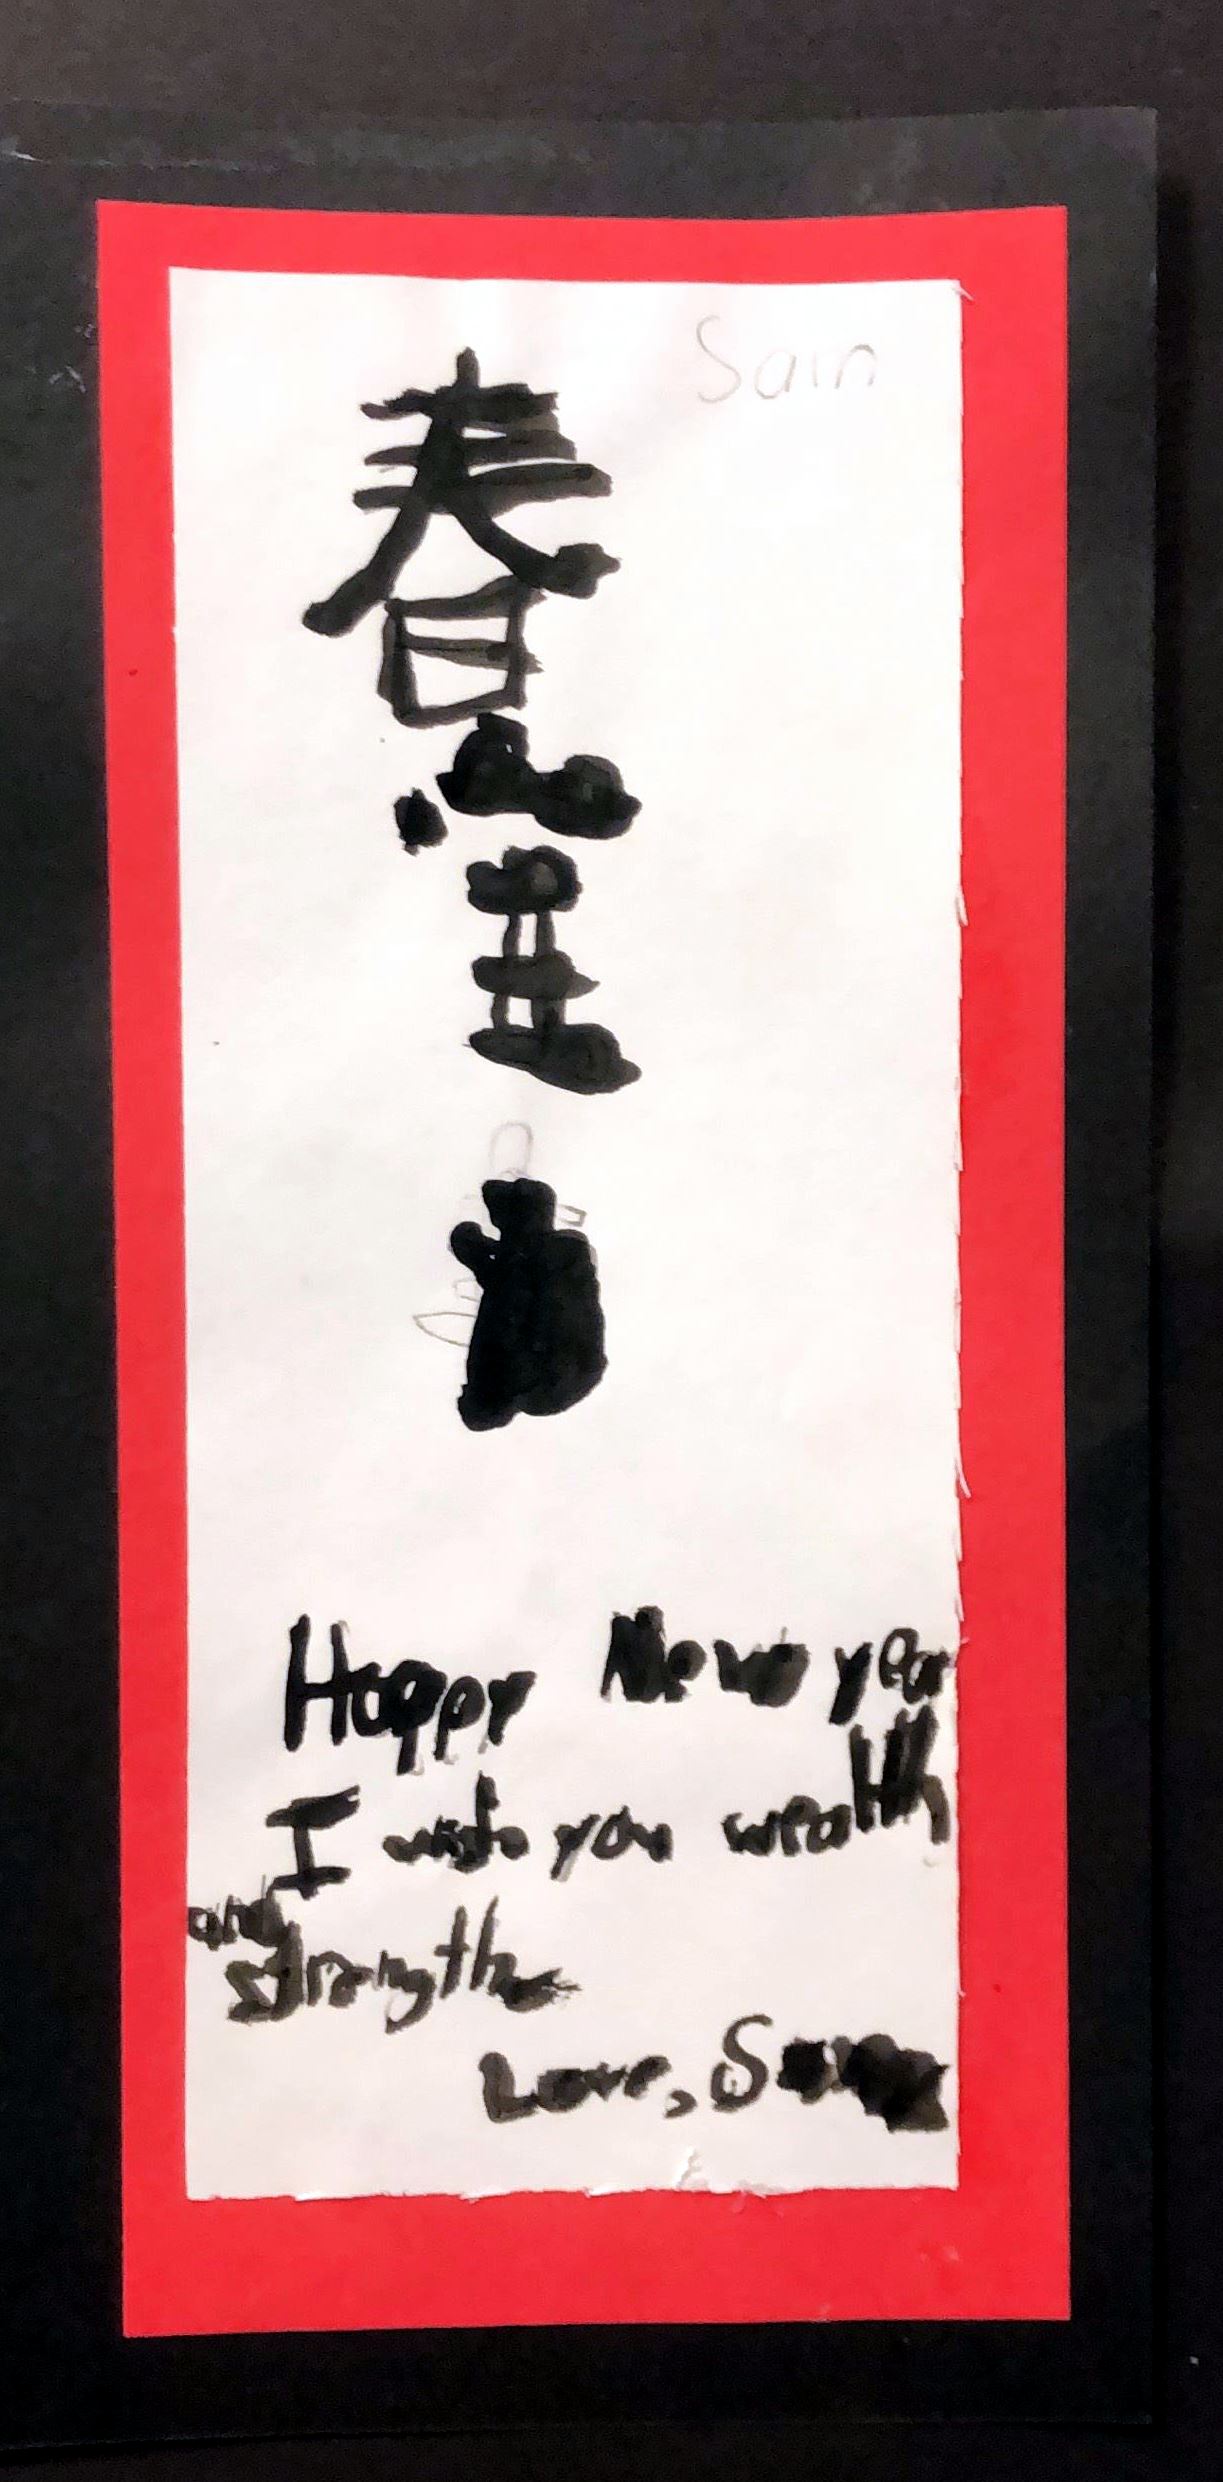 Sain
春
Happy New year
I wish you wealth
and
strength
Love, S